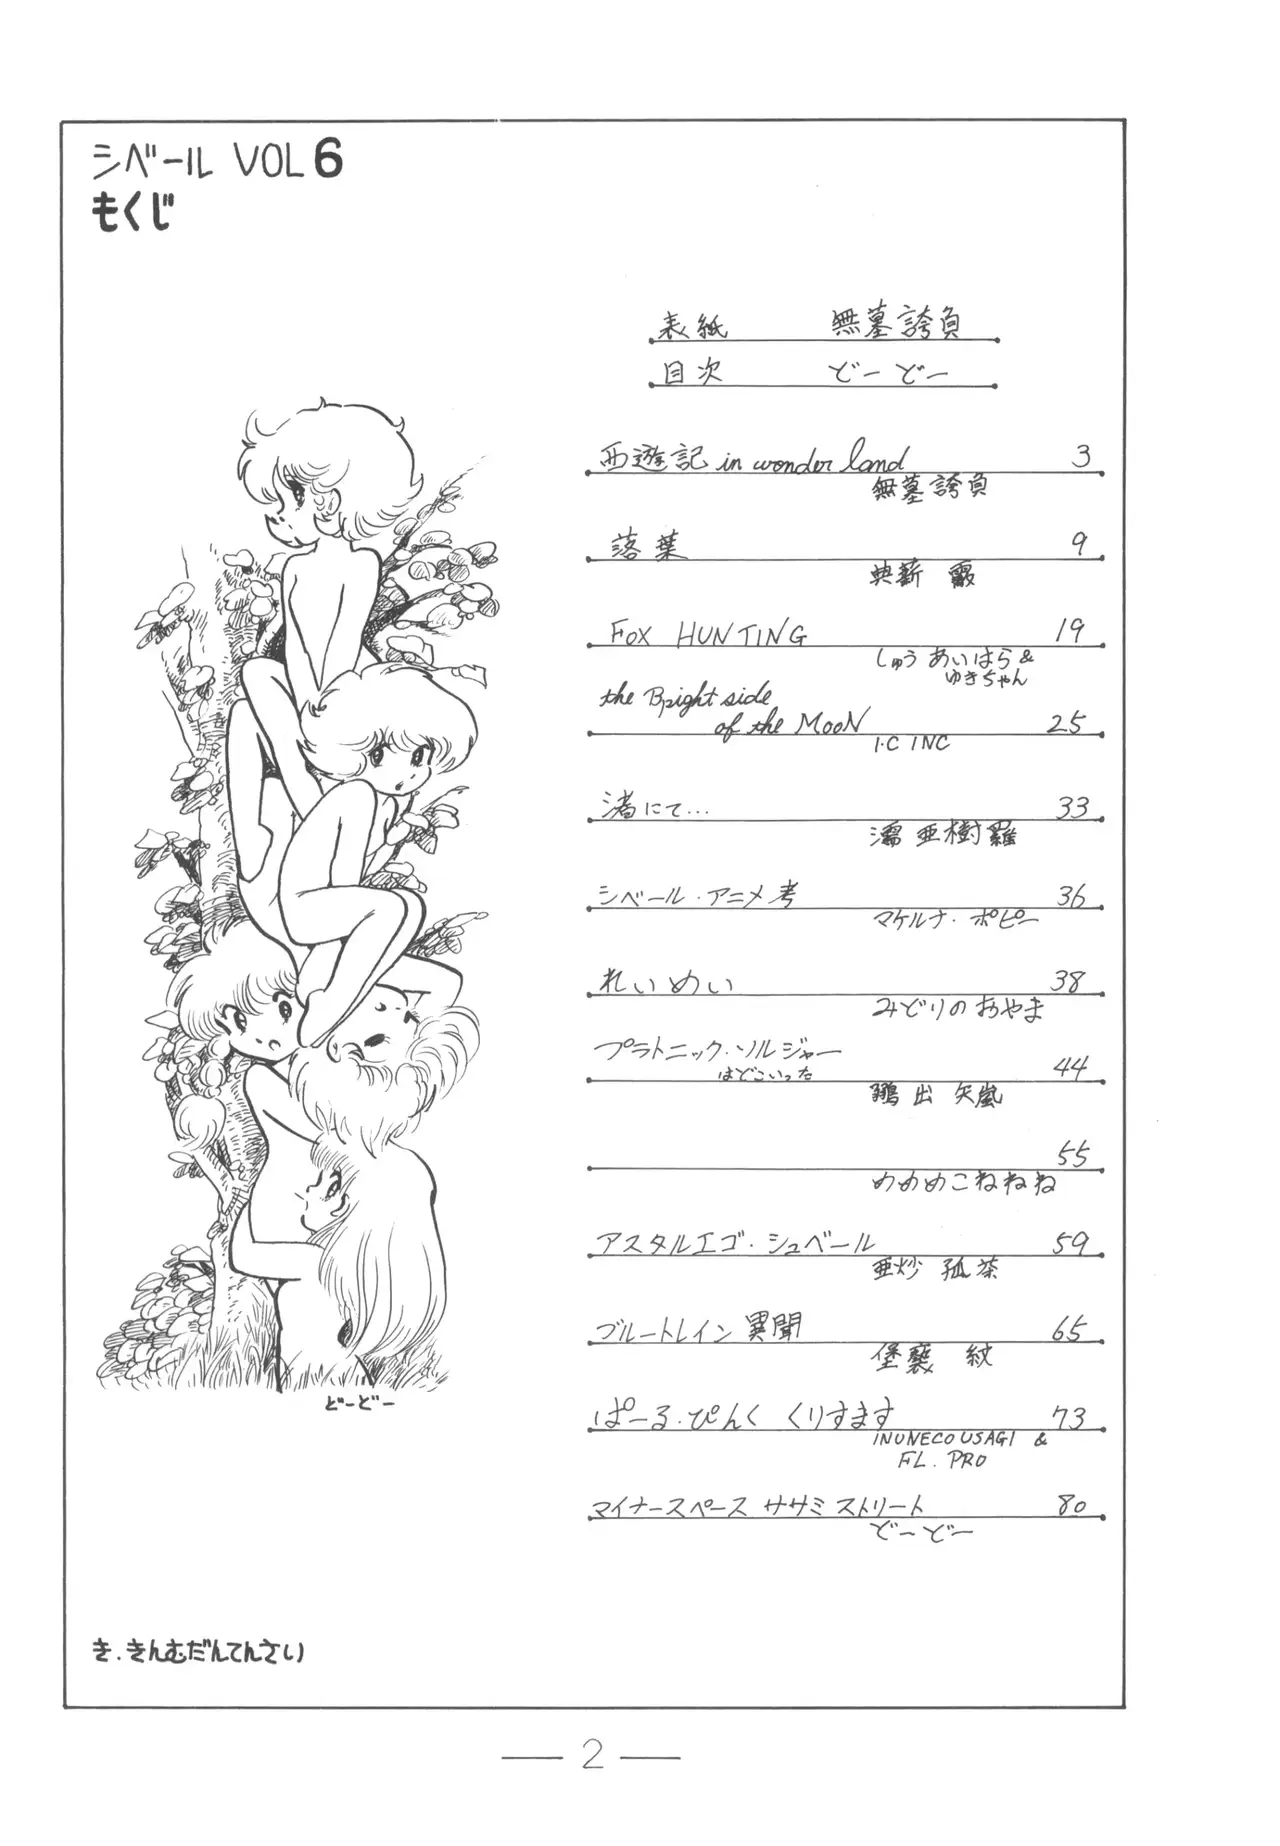 シベール VOL 6
もくじ
表紙 無墓誇負
目次 どーどー
西遊記 in wonder land 3
無墓誇負
落葉 9
典薪 霞
FOX HUNTING 19
しゅう あいはら &
ゆきちゃん
the Bright side
of the MooN 25
I.C INC
渚にて… 33
亜樹羅
シベール・アニメ考 36
マケルナ・ポピー
れいめい 38
みどりの あやま
プラトニック・ソルジャー
はどこいった 44
出 矢嵐
55
めめめこねねね
アスタルエゴ・シュベール 59
亜炒 孤茶
ブルートレイン 異聞 65
紋
ぱーる・ぴんく くりすます 73
INUNECOUSAGI &
FL. PRO
マイナースペース ササミ ストリート 80
どーどー
どーどー
き.きんむだんてんさい
2